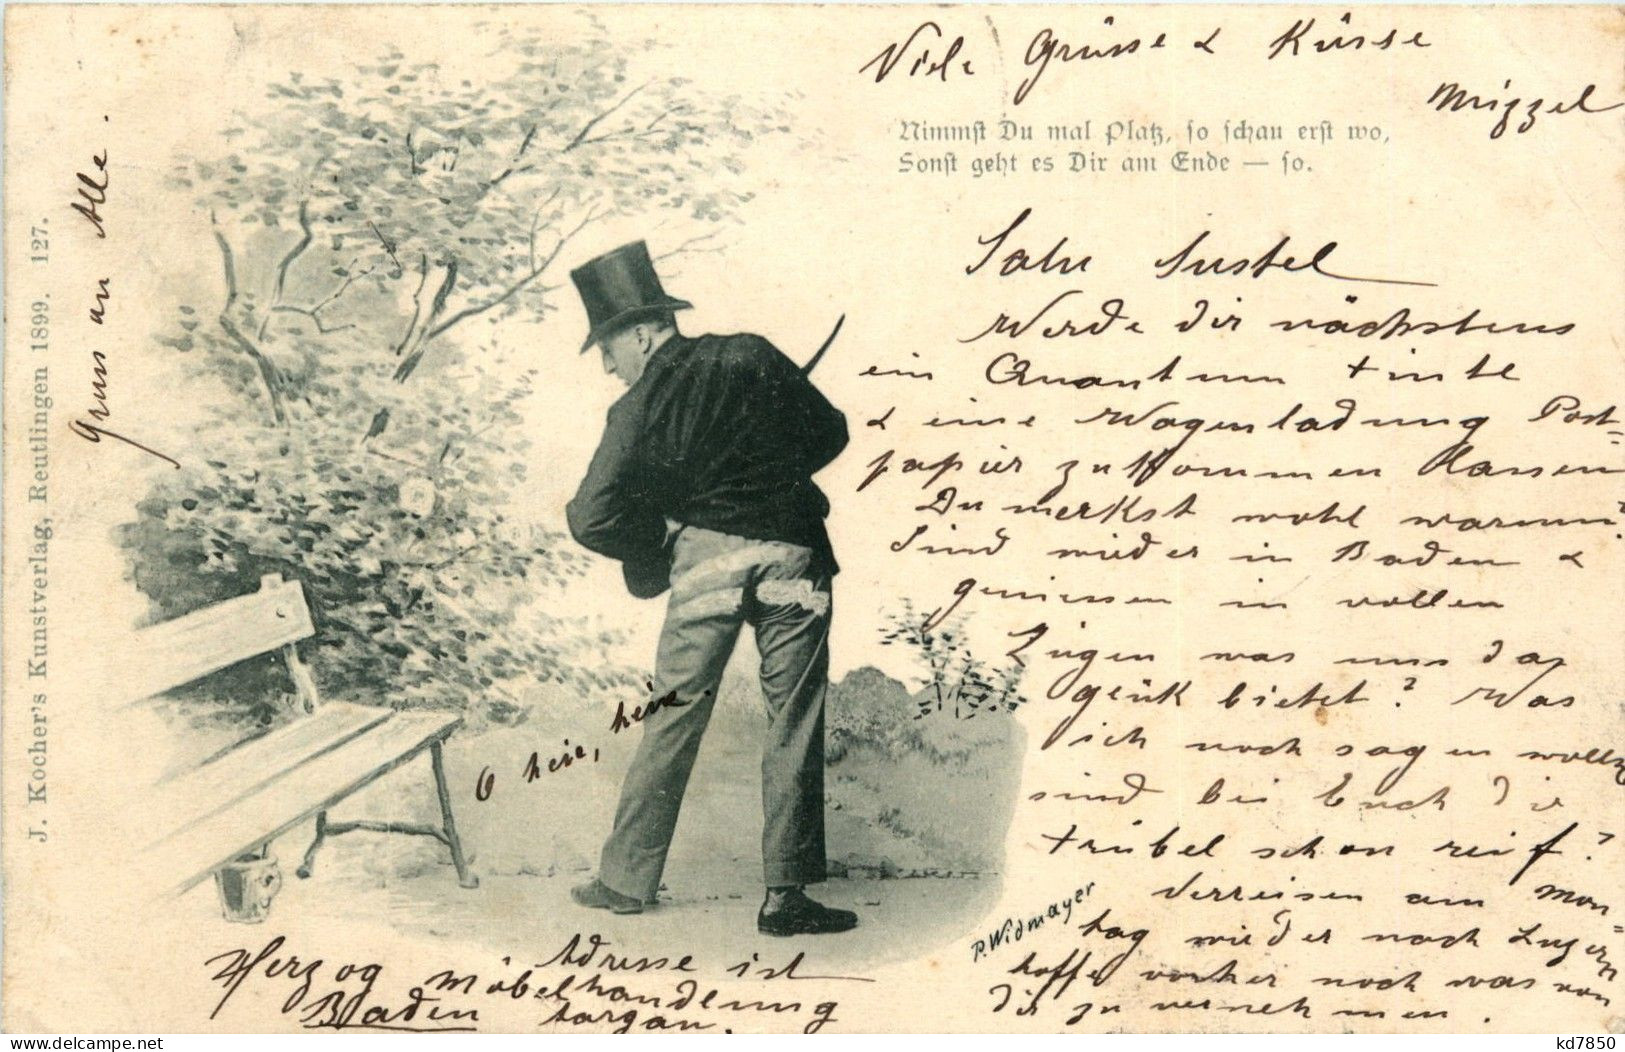 Viele Grüsse & Küsse
Mizzel
Nimmst Du mal Platz, so schau erst wo,
Sonst geht es Dir am Ende — so.
Salu Sustel
Werde dir nächstens
ein Quantum Tinte
& eine Wagenladung Post=
papier zukommen lassen
Du merkst wohl warum?
Sind wieder in Baden &
geniessen in vollen
Zügen was uns das
glük bietet? Was
ich noch sagen wollte
sind bei Euch die
trübel schon reif?
Verreisen am Mon=
tag wieder nach Luzern
hoffe vorher noch was von
dir zu vernehmen.
Gruss an Alle.
J. Kocher's Kunstverlag, Reutlingen 1899. 127.
O heie, heie.
P. Widmayer
Adresse ist
Herzog Möbelhandlung
Baden Aargau.
kd7850